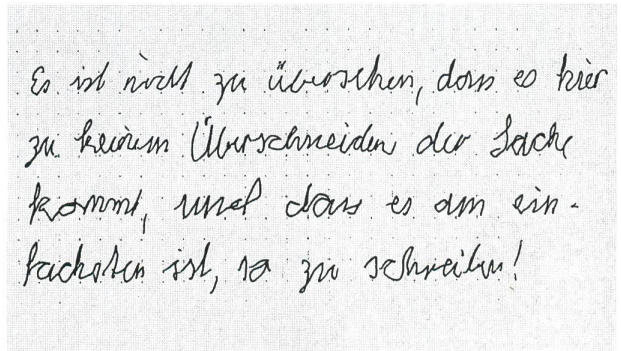 Es ist nicht zu übersehen, dass es hier
zu keinem Überschneiden der Sache
kommt, und dass es am ein-
fachsten ist, so zu schreiben!